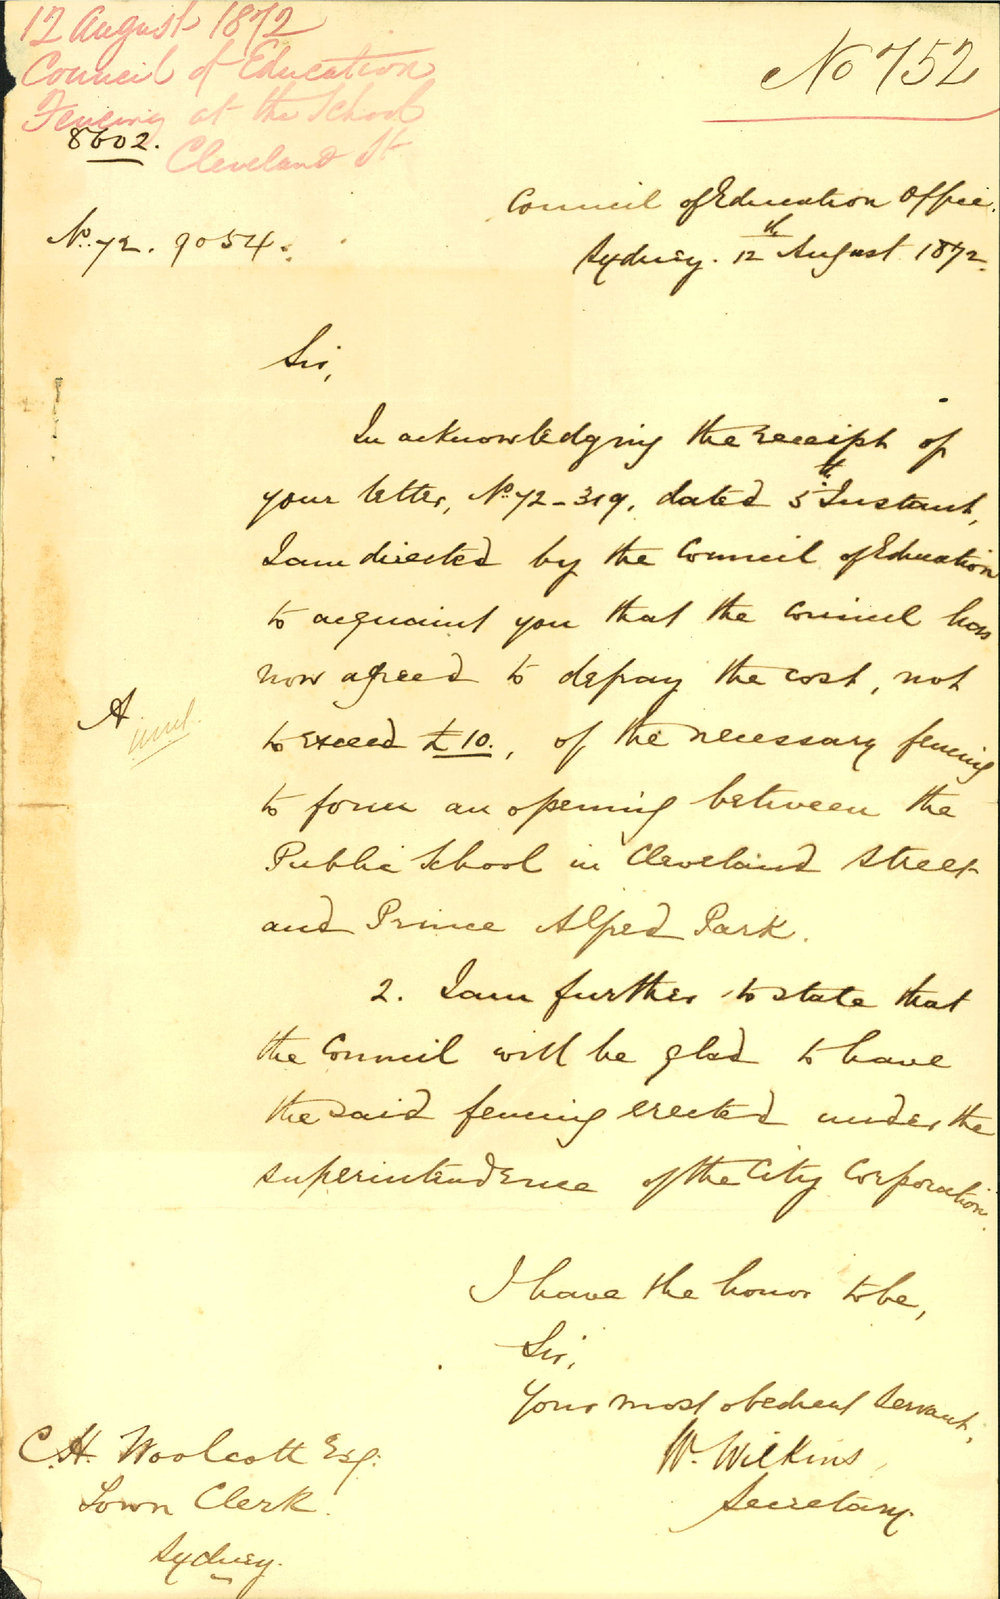 12 August 1872
Council of Education
Fencing at the School
Cleveland St
No 752
8602.
Council of Education Office.
No. 72. 9054.
Sydney. 12th August 1872.
Sir,
In acknowledging the receipt of
your letter, No. 72-319, dated 5th Instant,
I am directed by the Council of Education
to acquaint you that the Council has
now agreed to defray the cost, not
A
to exceed £10., of the necessary fencing
to form an opening between the
Public School in Cleveland Street
and Prince Alfred Park.
2. I am further to state that
the Council will be glad to have
the said fencing erected under the
superintendence of the City Corporation.
I have the honor to be,
Sir,
Your most obedient Servant,
W. Wilkins
Secretary.
C. H. Woolcott Esq.
Town Clerk.
Sydney.